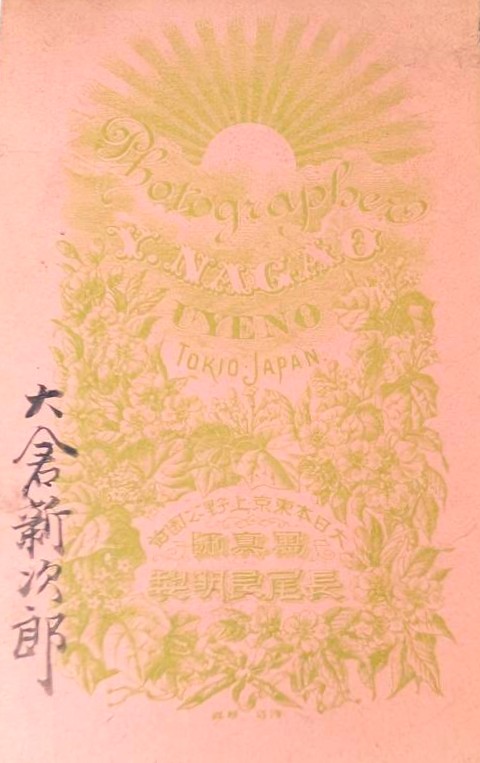 Photographer
Y. NAGAO
UYENO
TOKIO. JAPAN.
大日本東京上野公園前
寫真師
長尾良明製
大倉新次郎